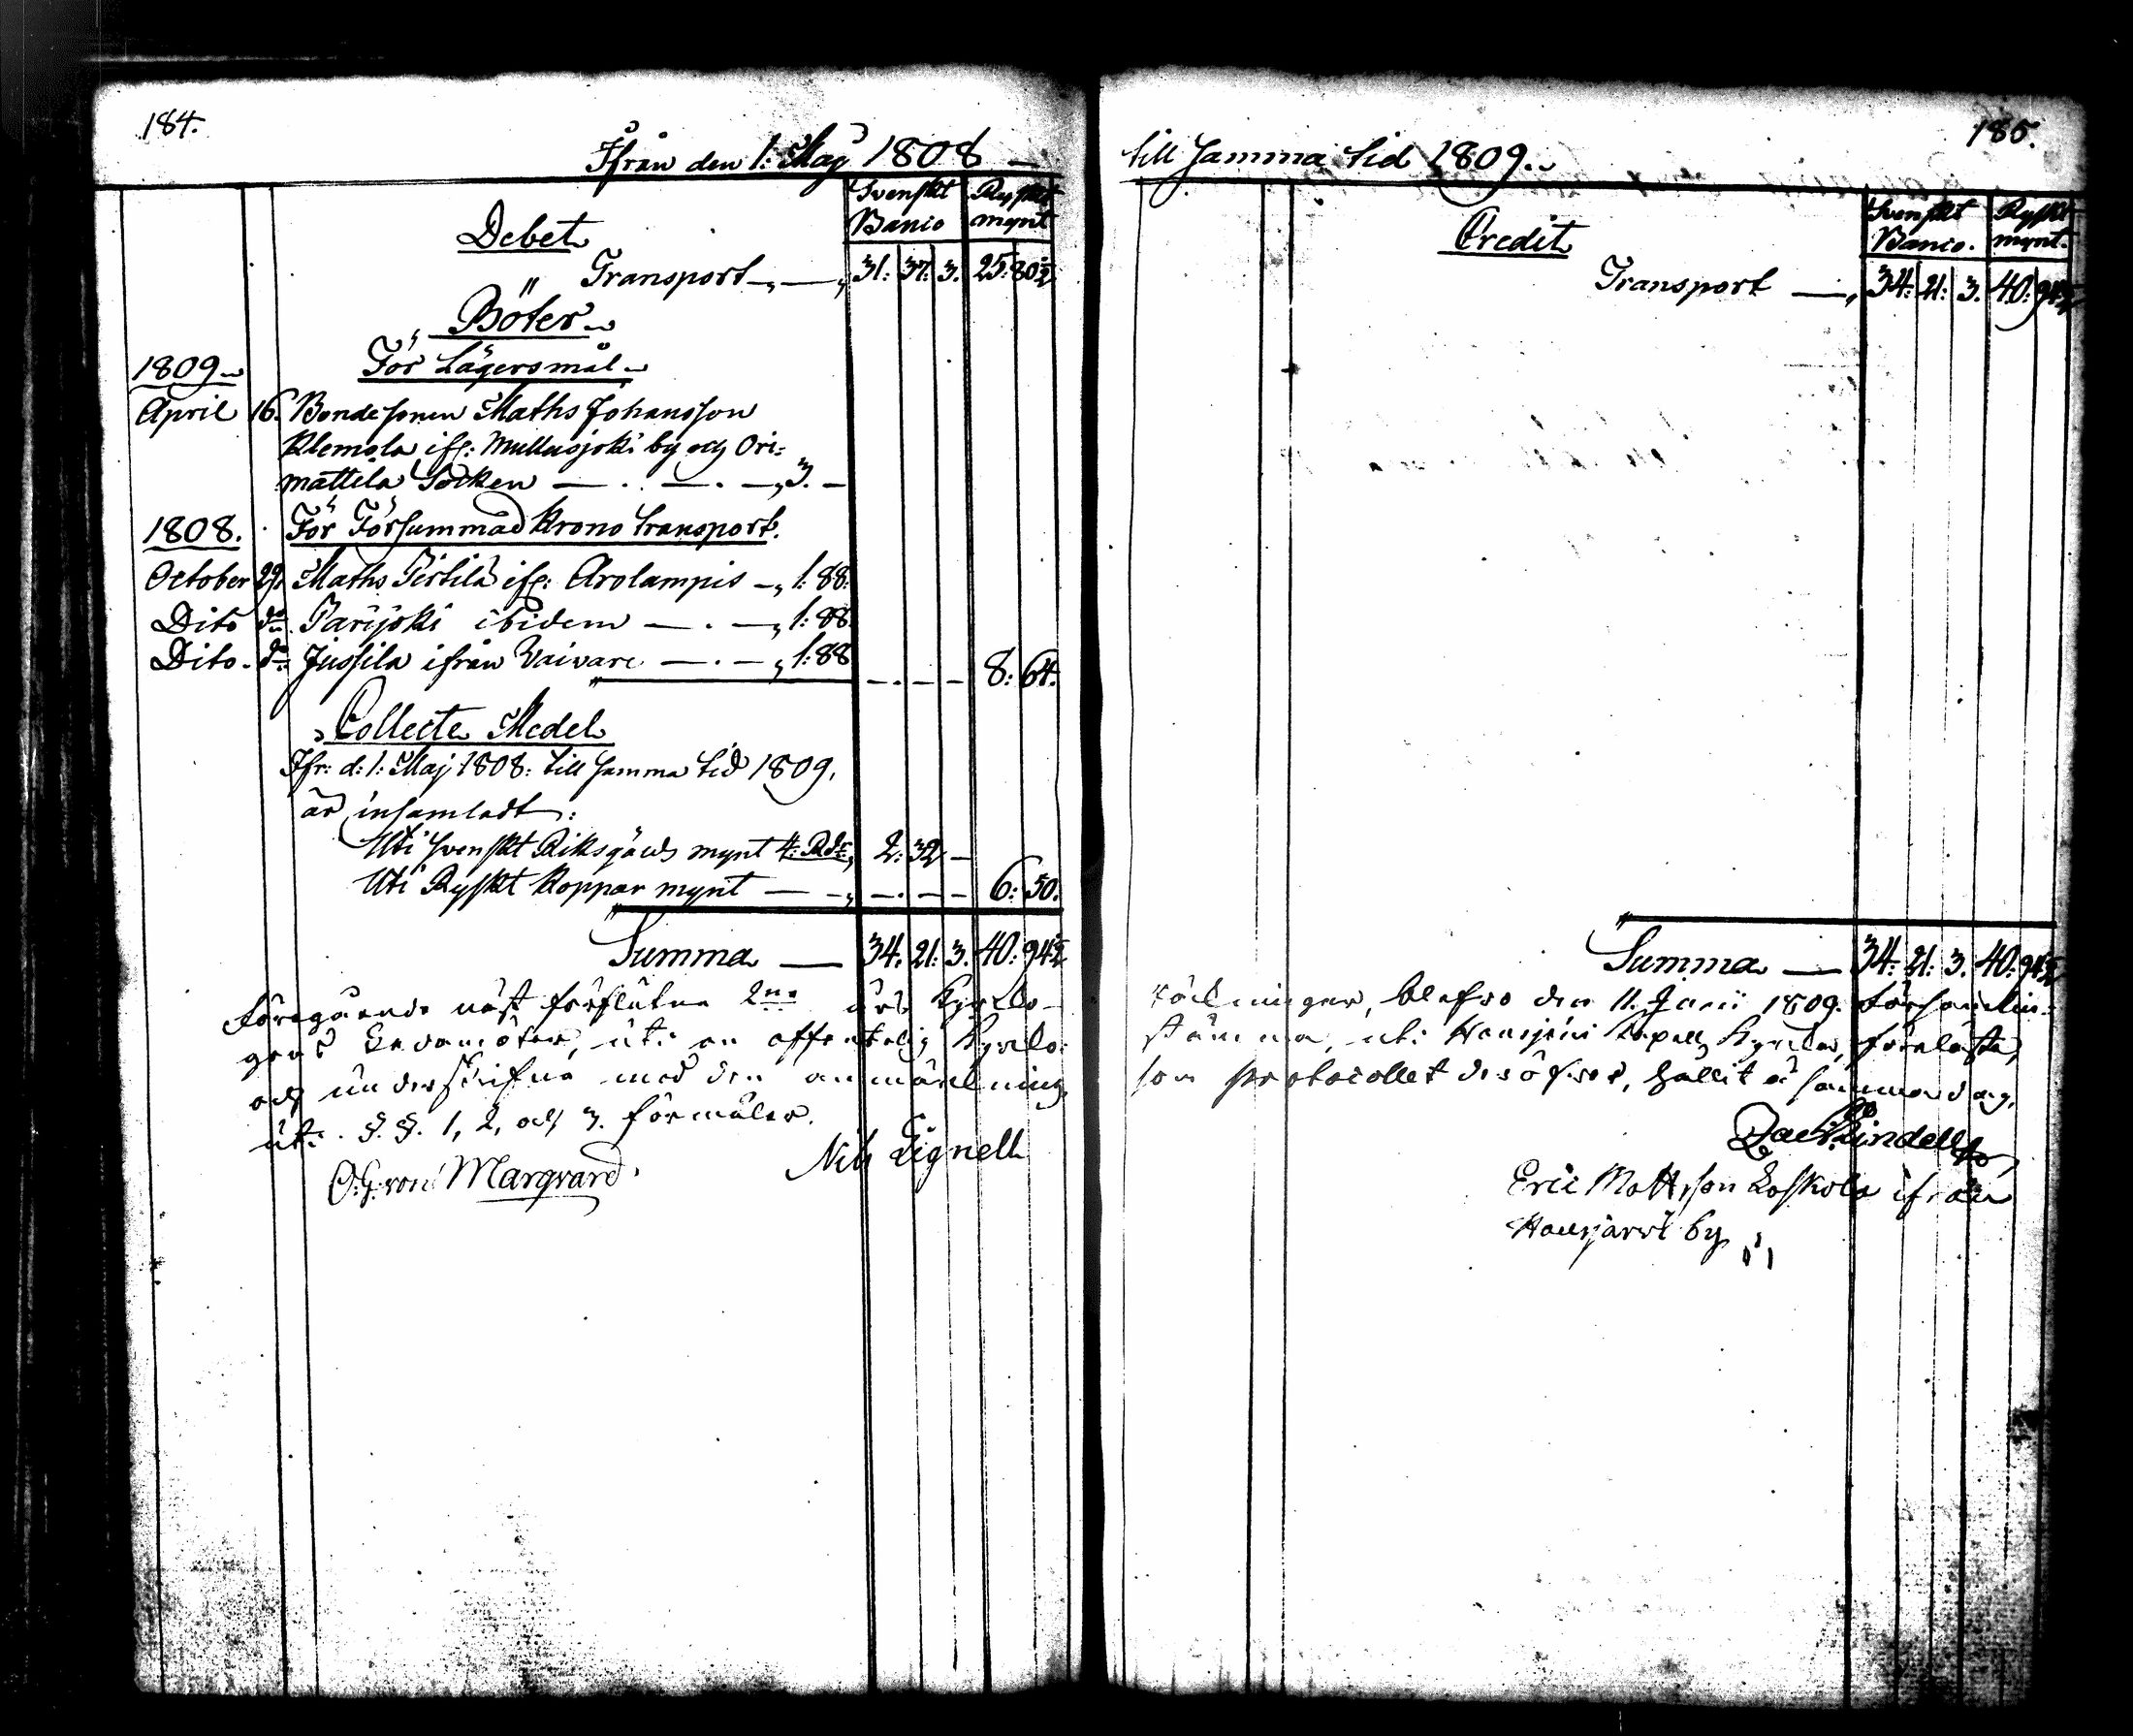 184.
Ifrån den 1: Maj 1808 —
Svenskt Banco
Ryskt mynt
Debet
Transport — 31: 37: 3. 25: 80½
Böter
1809
För Lägersmål
April 16. Bondesonen Maths Johansson
Klemola ifr: Mullusjoki by och Ori=
mattila Socken — . — . — 3. —
1808. För Försummad Krono transport.
October 29. Maths Pertilä ifr: Arolampis — 1: 88.
Dito do Parijoki ibidem — . — 1: 88.
Dito. do Jussila ifrån Vaivare — . — 1: 88
8: 64.
Collecte Medel
Ifr: d: 1: Maj 1808: till samma tid 1809,
är insamladt:
Uti Svenskt Riksgälds mynt 4: Rdr 2: 32 —
Uti Ryskt Koppar mynt — — . — — 6: 50.
Summa — 34. 21: 3. 40: 94½
Föregående näst förflutna 2ne års Kyrko-
gens Ledamöter, uti en offentelig Kyrko-
och underskrifne med den anmärkning,
uti §. §. 1, 2, och 3. förmäler.
Nils Lignell
C. G. von Marqvard.
185.
till samma tid 1809.
Svenskt Banco.
Ryskt mynt.
Credit
Transport — 34: 21: 3. 40: 94½
Summa — 34: 21: 3. 40: 94½
räkningar, blefvo den 11. Junii 1809. Församlin=
stämma, uti Hausjärvi Capells Kyrka, förelästa,
som protocollet deröfver, hållit å samma dag,
Lindell
Eric Mattsson Koskola ifrån
Hausjärvi by